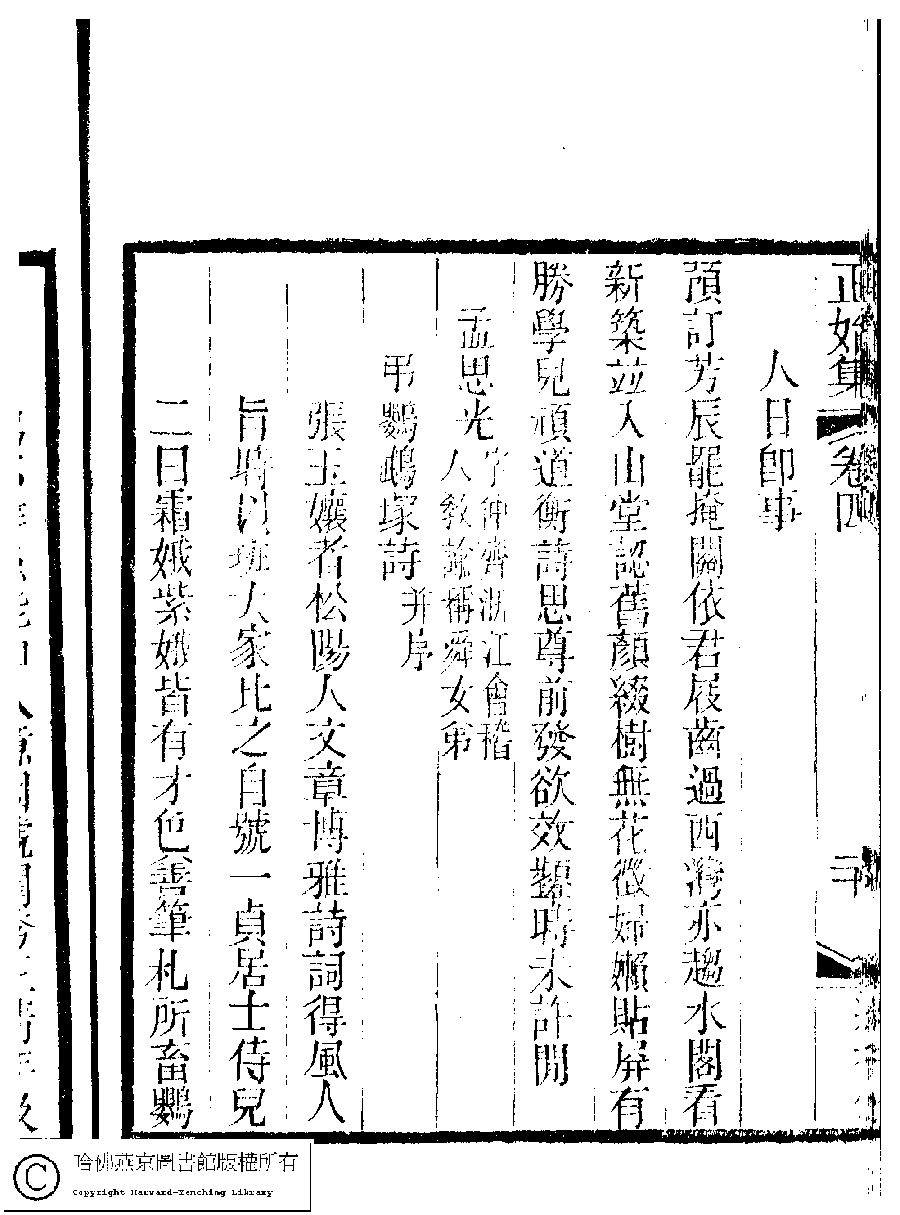 正始集 卷四
二
人日即事
預訂芳辰罷掩關依君屐齒過西灣亦趨水閣看
新築並入山堂認舊顏綴樹無花徵婦嬾貼屏有
勝學兒頑道衡詩思尊前發欲效顰時未許閒
孟思光
字仲齊浙江會稽
人教諭稱舜女弟
弔鸚鵡冢詩 并序
張玉孃者松陽人文章博雅詩詞得風人
旨時以班大家比之自號一貞居士侍兒
二曰霜娥紫娥皆有才色善筆札所畜鸚
哈佛燕京圖書館版權所有
Copyright Harvard-Yenching Library